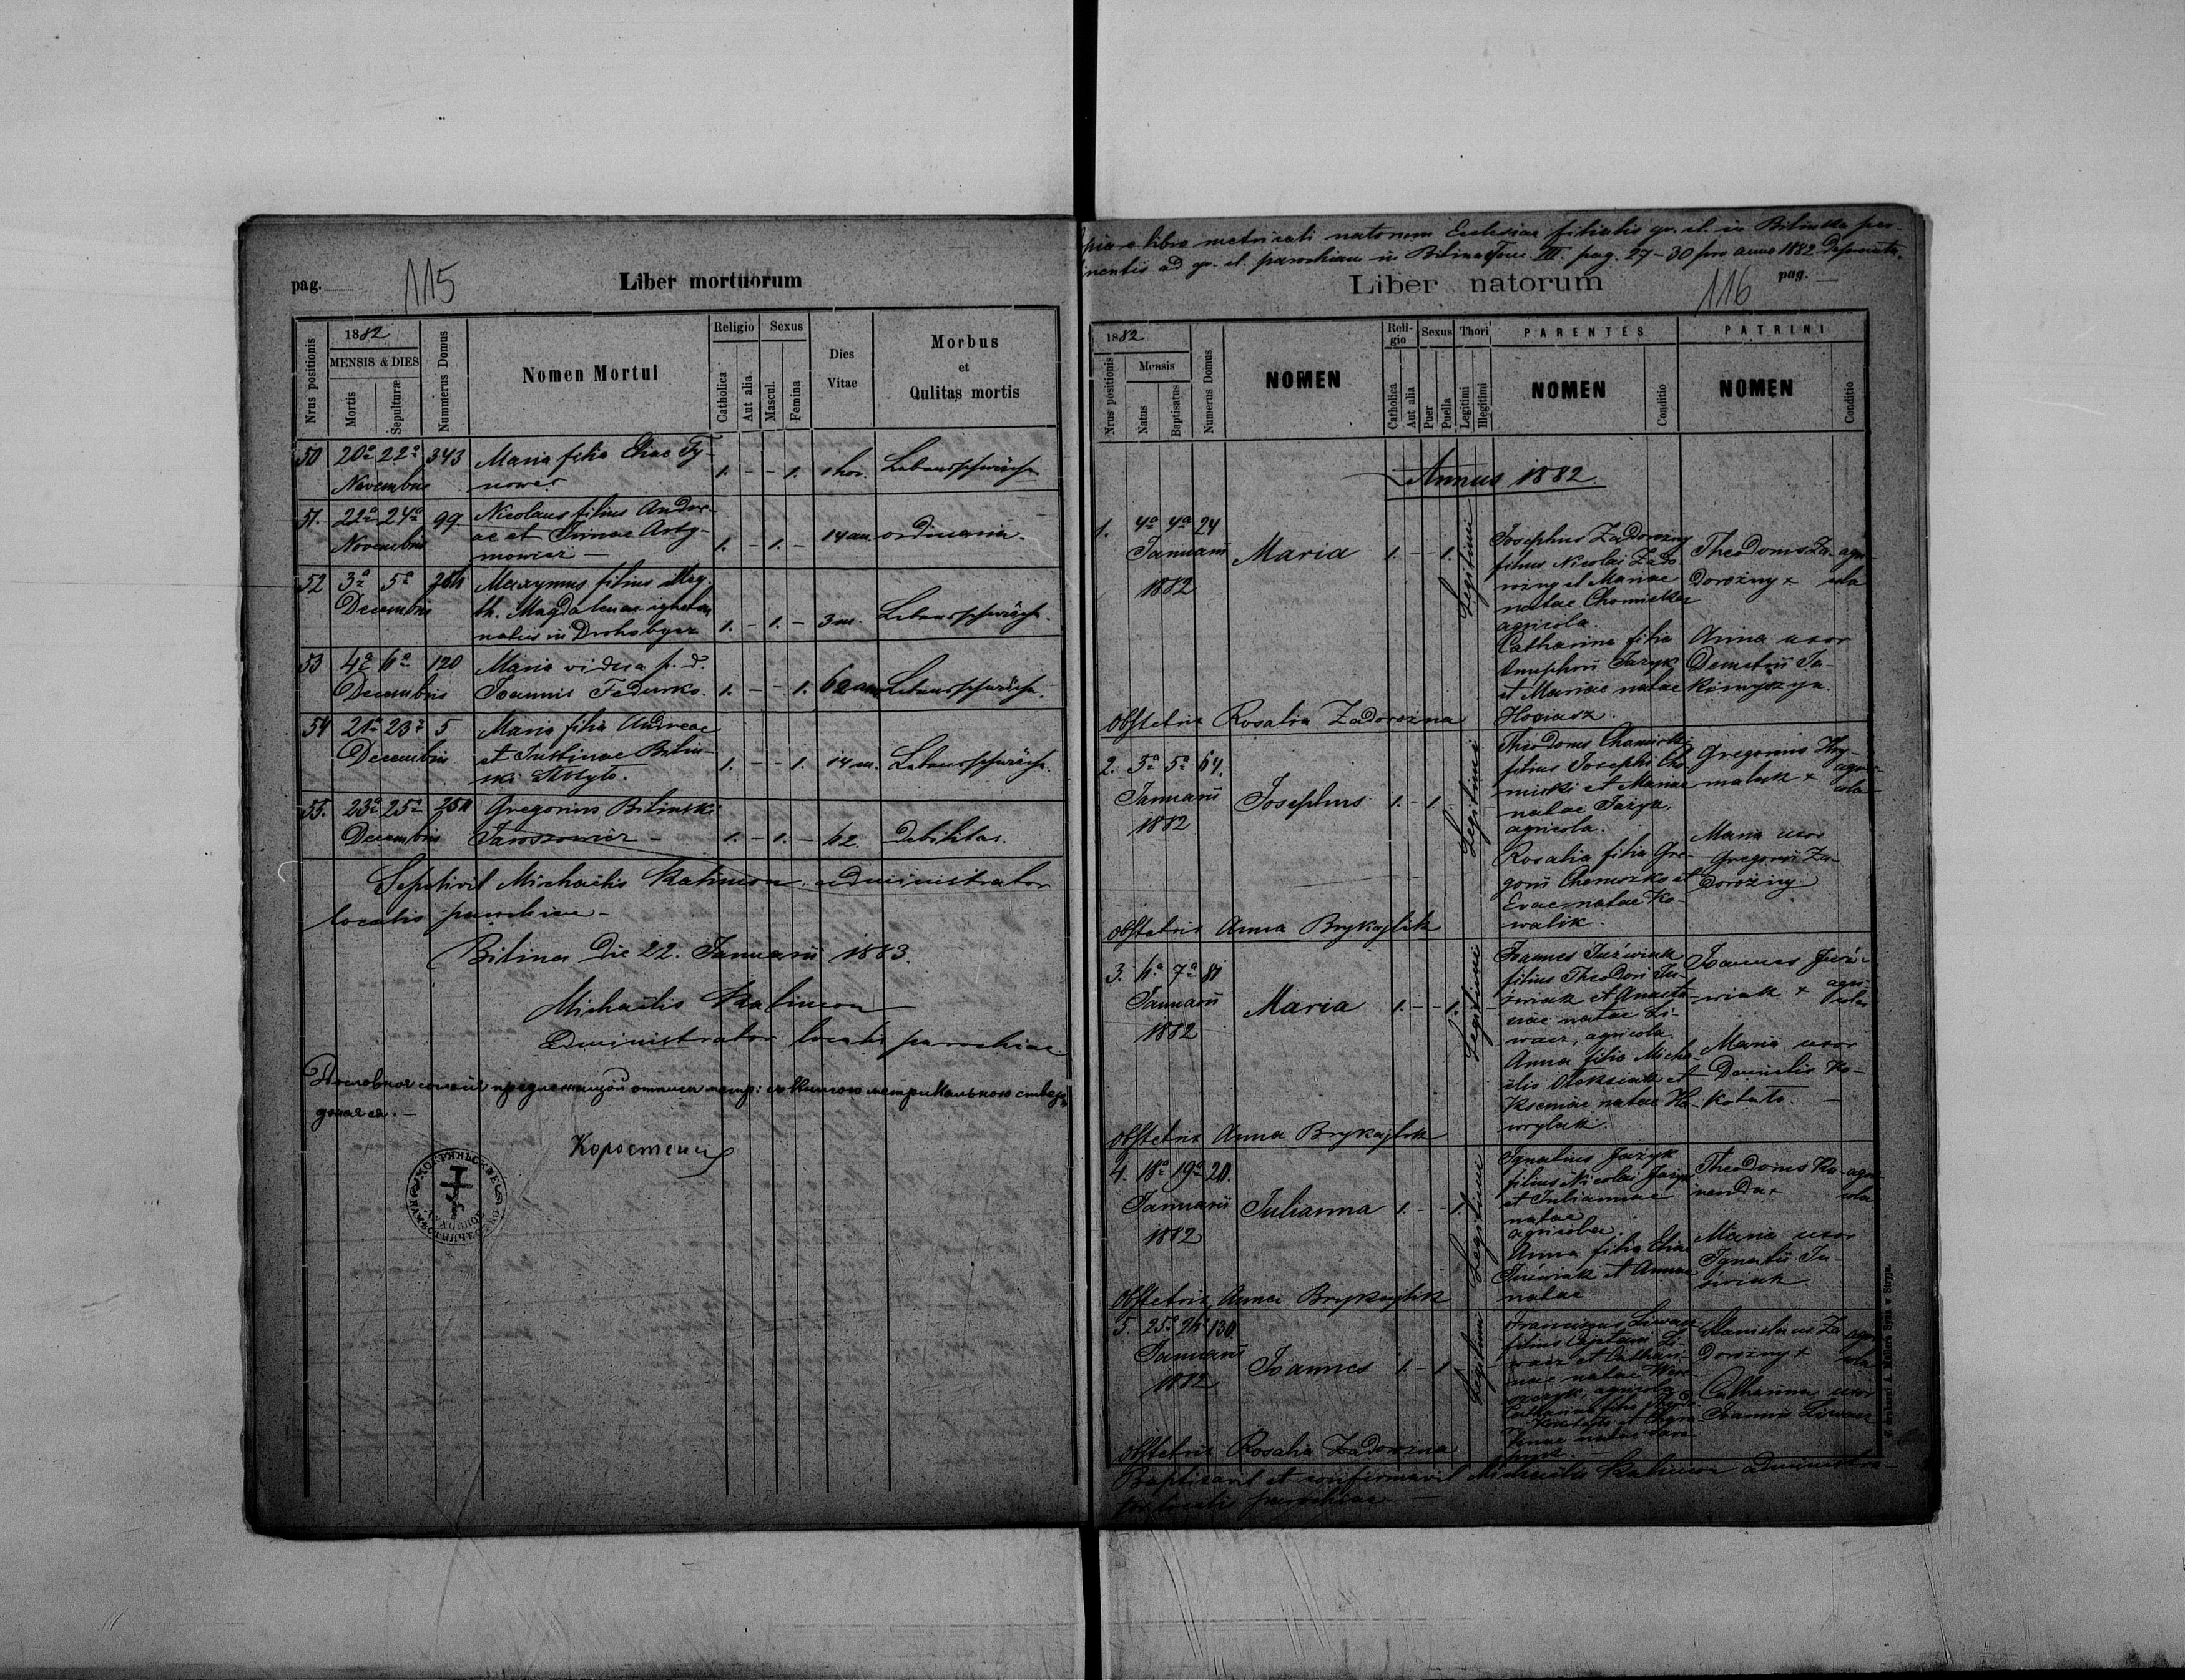 pag.
115
Liber mortuorum
Nrus positionis
1882
MENSIS & DIES
Mortis
Sepulturæ
Nummerus Domus
Nomen Mortui
Religio
Catholica
Aut alia
Sexus
Mascul.
Femina
Dies
Vitae
Morbus
et
Qulitas mortis
50 20a 22a 343 Maria filia Eliae Ty- 1. - - 1. 1 hor. Lebensschwäche
Novembris nower
51. 22a 24a 99 Nicolaus filius Andre-
Novembris ae et Irinae Arty- 1. - 1. - 14 an. ordinaria.
mowicz —
52 3a 5a Maxymus filius illeg.
Decembris th. Magdalenae
natus in Drohobycz 1. - 1. - 3 m. Lebensschwäche.
53 4a 6a 120 Maria vidua p. d.
Decembris Joannis Fedurko. 1. - - 1. 62 an. Lebensschwäche.
54 21a 23a 5 Maria filia Andreae
Decembris et Justinae Bilin- 1. - - 1. 14 m. Lebensschwäche.
ski
55. 23a 25a Gregorius Bilinski
Decembris Jaroszewicz — 1. - 1. - 62. debilitas.
Sepelivit Michaëlis Kalimon administrator
localis parochiae —
Bilina die 22. Januarii 1883.
Michaëlis Kalimon
Administrator localis parochiae
метрикальною
116
e libro metricali natorum Ecclesiae filialis gr. ct. in Bilinka per-
tinentis ad gr. ct. parochiam in Bilina Tom III. pag. 27-30 pro anno 1882
Liber natorum
pag.
1882
Nrus positionis
Mensis
Natus
Baptisatus
Numerus Domus
NOMEN
Reli-
gio
Catholica
Aut alia
Sexus
Puer
Puella
Thori
Legitimi
Illegitimi
PARENTES
NOMEN
Conditio
PATRINI
NOMEN
Conditio
Annus 1882.
1. 4a 4a 24
Januarii
1882
Maria 1. - - 1. Legitimi
Josephus Zadorozny
filius Nicolai Zado-
rozny et Mariae
natae Chomicka
agricola.
Catharina filia
Onuphrii Jazyk
et Mariae natae
Hociasz.
Theodorus Za- agri-
dorożny + cola
Anna uxor
Demetrii Ja-
kimyszyn.
Obstetrix Rosalia Zadorożna
2. 3a 5a 64.
Januarii
1882
Josephus 1. - 1. Legitimi
Theodorus Chomicki
filius Josephi Cho-
micki et Mariae
natae Jazyk,
agricola.
Rosalia filia Gre-
gorii et
Evae natae Ko-
walik.
Gregorius Hry- agri-
maluk + cola
Maria uxor
Gregorii Za-
dorożny.
Obstetrix Anna Brykajlik
3. 6a 7a 81
Januarii
1882
Maria 1. - - 1. Legitimi
Joannes Juźwiak
filius Theodori Ju-
źwiak et Anasta-
siae natae Li-
wacz, agricola.
Anna filia Micha-
elis Oleksiak et
Kseniae natae Ha-
wrylak.
Joannes Juź- agri-
wiak + cola
Maria uxor
Danielis Ko-
kotato. —
Obstetrix Anna Brykajlik
4. 18a 19a 20.
Januarii
1882
Julianna 1. - - 1. Legitimi
Ignatius Jazyk
filius Nicolai Jazyk
et Juliannae
natae
agricola
Anna filia Eliae
Juźwiak et Annae
natae
Theodorus Ha- agri-
nenda + cola
Maria uxor
Ignatii Ju-
źwiak.
Obstetrix Anna Brykajlik
5. 25a 26a 130
Januarii
1882
Joannes 1. - 1. Legitimi
Franciscus Liwacz
filius Li-
wacz et Cathari-
nae natae
agricola
Catharina filia
natae
Stanislaus Za- agri-
dorożny + cola
Catharina uxor
Joannis Liwacz
Obstetrix Rosalia Zadorożna
Baptisavit et confirmavit Michaëlis Kalimon administra-
tor localis parochiae —